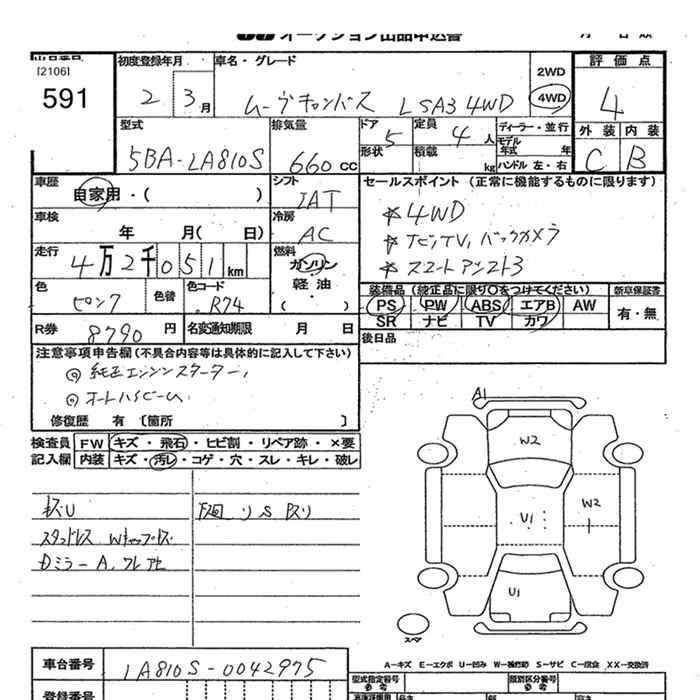 オークション出品申込書 月 日 原
出品番号
[2106]
591
初度登録年月 車名・グレード 2WD 4WD 評価点
2 3月 ムーヴキャンバス LSA3 4WD 4
型式 排気量 ドア 形状 定員 積載 kg
5BA-LA810S 660cc 5 4人
ディーラー・並行
モデル年式 年
ハンドル 左・右
外装 内装
C B
車歴 自家用・( ) シフト IAT
セールスポイント (正常に機能するものに限ります)
☆4WD
☆ナビ,TV,バックカメラ
☆スマートアシスト3
車検 年 月( 日) 冷房 AC
走行 4万2千051km 燃料 ガソリン 軽油 ・( )
色 ピンク 色替 色コード R74
装備品(純正品に限り○をつけてください) 新車保証書
PS PW ABS エアB AW 有・無
SR ナビ TV カワ
R券 8790円 名変通知期限 月 日
後日品
注意事項申告欄(不具合内容等は具体的に記入して下さい)
◎純正エンジンスターター,
◎オートハイビーム
修復歴 有 〔箇所 〕
検査員 記入欄
FW キズ・飛石・ヒビ割・リペア跡・×要
内装 キズ・汚レ・コゲ・穴・スレ・キレ・破レ
キズU
スタッドレス Wキャップキズ
Dミラー A,
下回 サビ
A1
W2
W2
U1
U1
スペア
A-キズ E-エクボ U-凹み W-補修跡 S-サビ C-腐食 X-要交換 XX-交換済
車台番号 LA810S-0042975
登録番号
型式指定番号 参考 類別区分番号 参考